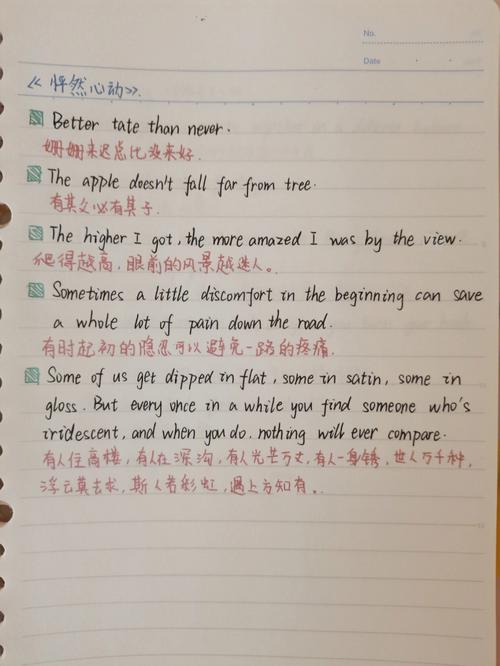 No.
Date
《怦然心动》.
Better tate than never.
姗姗来迟总比没来好.
The apple doesn't fall far from tree.
有其父必有其子.
The higher I got, the more amazed I was by the view.
爬得越高,眼前的风景越迷人。
Sometimes a little discomfort in the beginning can save
a whole lot of pain down the road.
有时起初的隐忍可以避免一路的疼痛.
Some of us get dipped in flat, some in satin, some in
gloss. But every once in a while you find someone who's
iridescent, and when you do. nothing will ever compare.
有人住高楼,有人在深沟,有人光芒万丈,有人一身锈,世人万千种,
浮云莫去求,斯人若彩虹,遇上方知有.